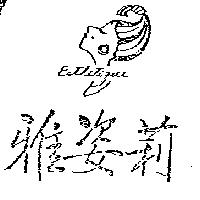 Esthetique
雅姿莉